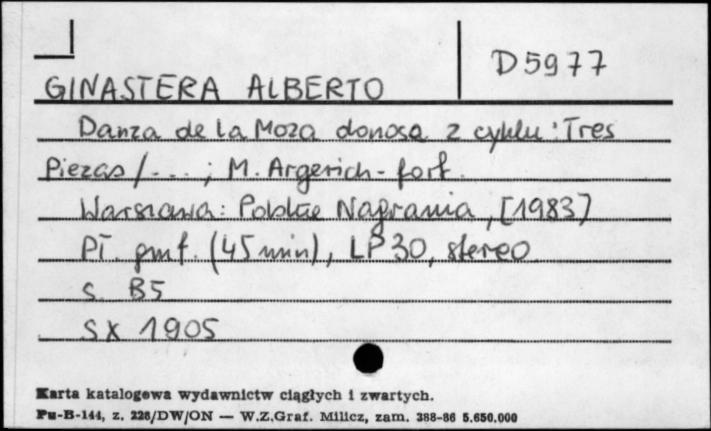 D 5977
GINASTERA ALBERTO
Danza de la Moza donosa z cyklu: Tres
Piezas / ... ; M. Argerich - fort.
Warszawa: Polskie Nagrania, [1983]
Pł. gmf. (45 min), LP 30, stereo
s. B5
SX 1905
Karta katalogowa wydawnictw ciągłych i zwartych.
Pu-B-144, z. 228/DW/ON — W.Z.Graf. Milicz, zam. 388-86 5.650.000